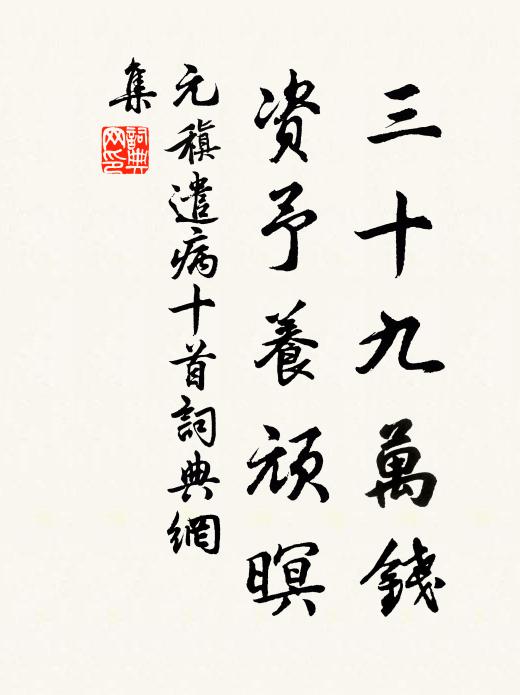 三十九萬錢
资予養頑暝
元稹遣病十首詞典網
集
詞典网印